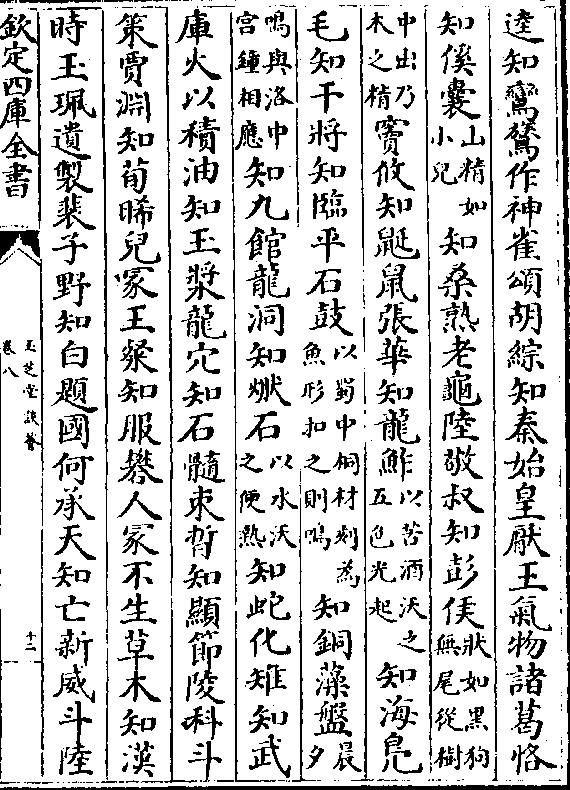 逵知鸞鷟作神雀頌胡綜知秦始皇厭王氣物諸葛恪
知傒囊山精如小兒知桑熟老龜陸敬叔知彭侯狀如黑狗無尾從樹
中出乃木之精竇攸知鼮鼠張華知龍鮓以苦酒沃之五色光起知海凫
毛知干將知臨平石鼓以蜀中桐材刻為魚形扣之則鳴知銅藻盤晨夕
鳴與洛中宫鍾相應知九館龍洞知㷄石以水沃之便熟知蛇化雉知武
庫火以積油知玉漿龍穴知石髓束晳知顯節陵科斗
策賈淵知荀晞兒冢王粲知服礜人冢不生草木知漢
時玉珮遺製裴子野知白題國何承天知亡新威斗陸
欽定四庫全書
玉芝堂談薈
卷八
十二